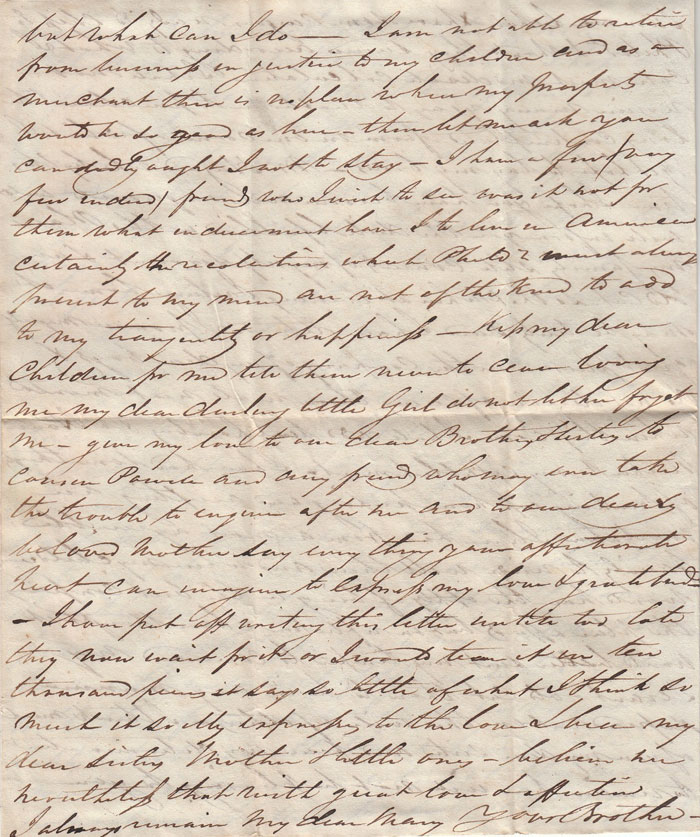 but what can I do — I am not able to retire
from business in justice to my children and as a
merchant there is no place where my prospects
would be so good as here – then let me ask you
candidly ought I not to stay – I have a few (very
few indeed) friends who I wish to see was it not for
them what inducement have I to live in America
certainly the recollections which Philad? must always
present to my mind are not of the kind to add
to my tranquility or happiness – Kiss my dear
Children for me tell them never to cease loving
me my dear darling little Girl do not let her forget
me – give my love to our dear Brothers, Sisters, &c
Cousin Powell and any friends who may ever take
the trouble to enquire after me and to our dearly
beloved Mother say every thing your affectionate
heart can imagine to express my love & gratitude
– I have put off writing this letter until too late
they now wait for it – or I would tear it in ten
thousand pieces it says so little of what I think so
much it so illy expresses the love I bear my
dear sister, Mother & little ones – believe me
nevertheless that with great love & affection
I always remain My dear Mary Your Brother